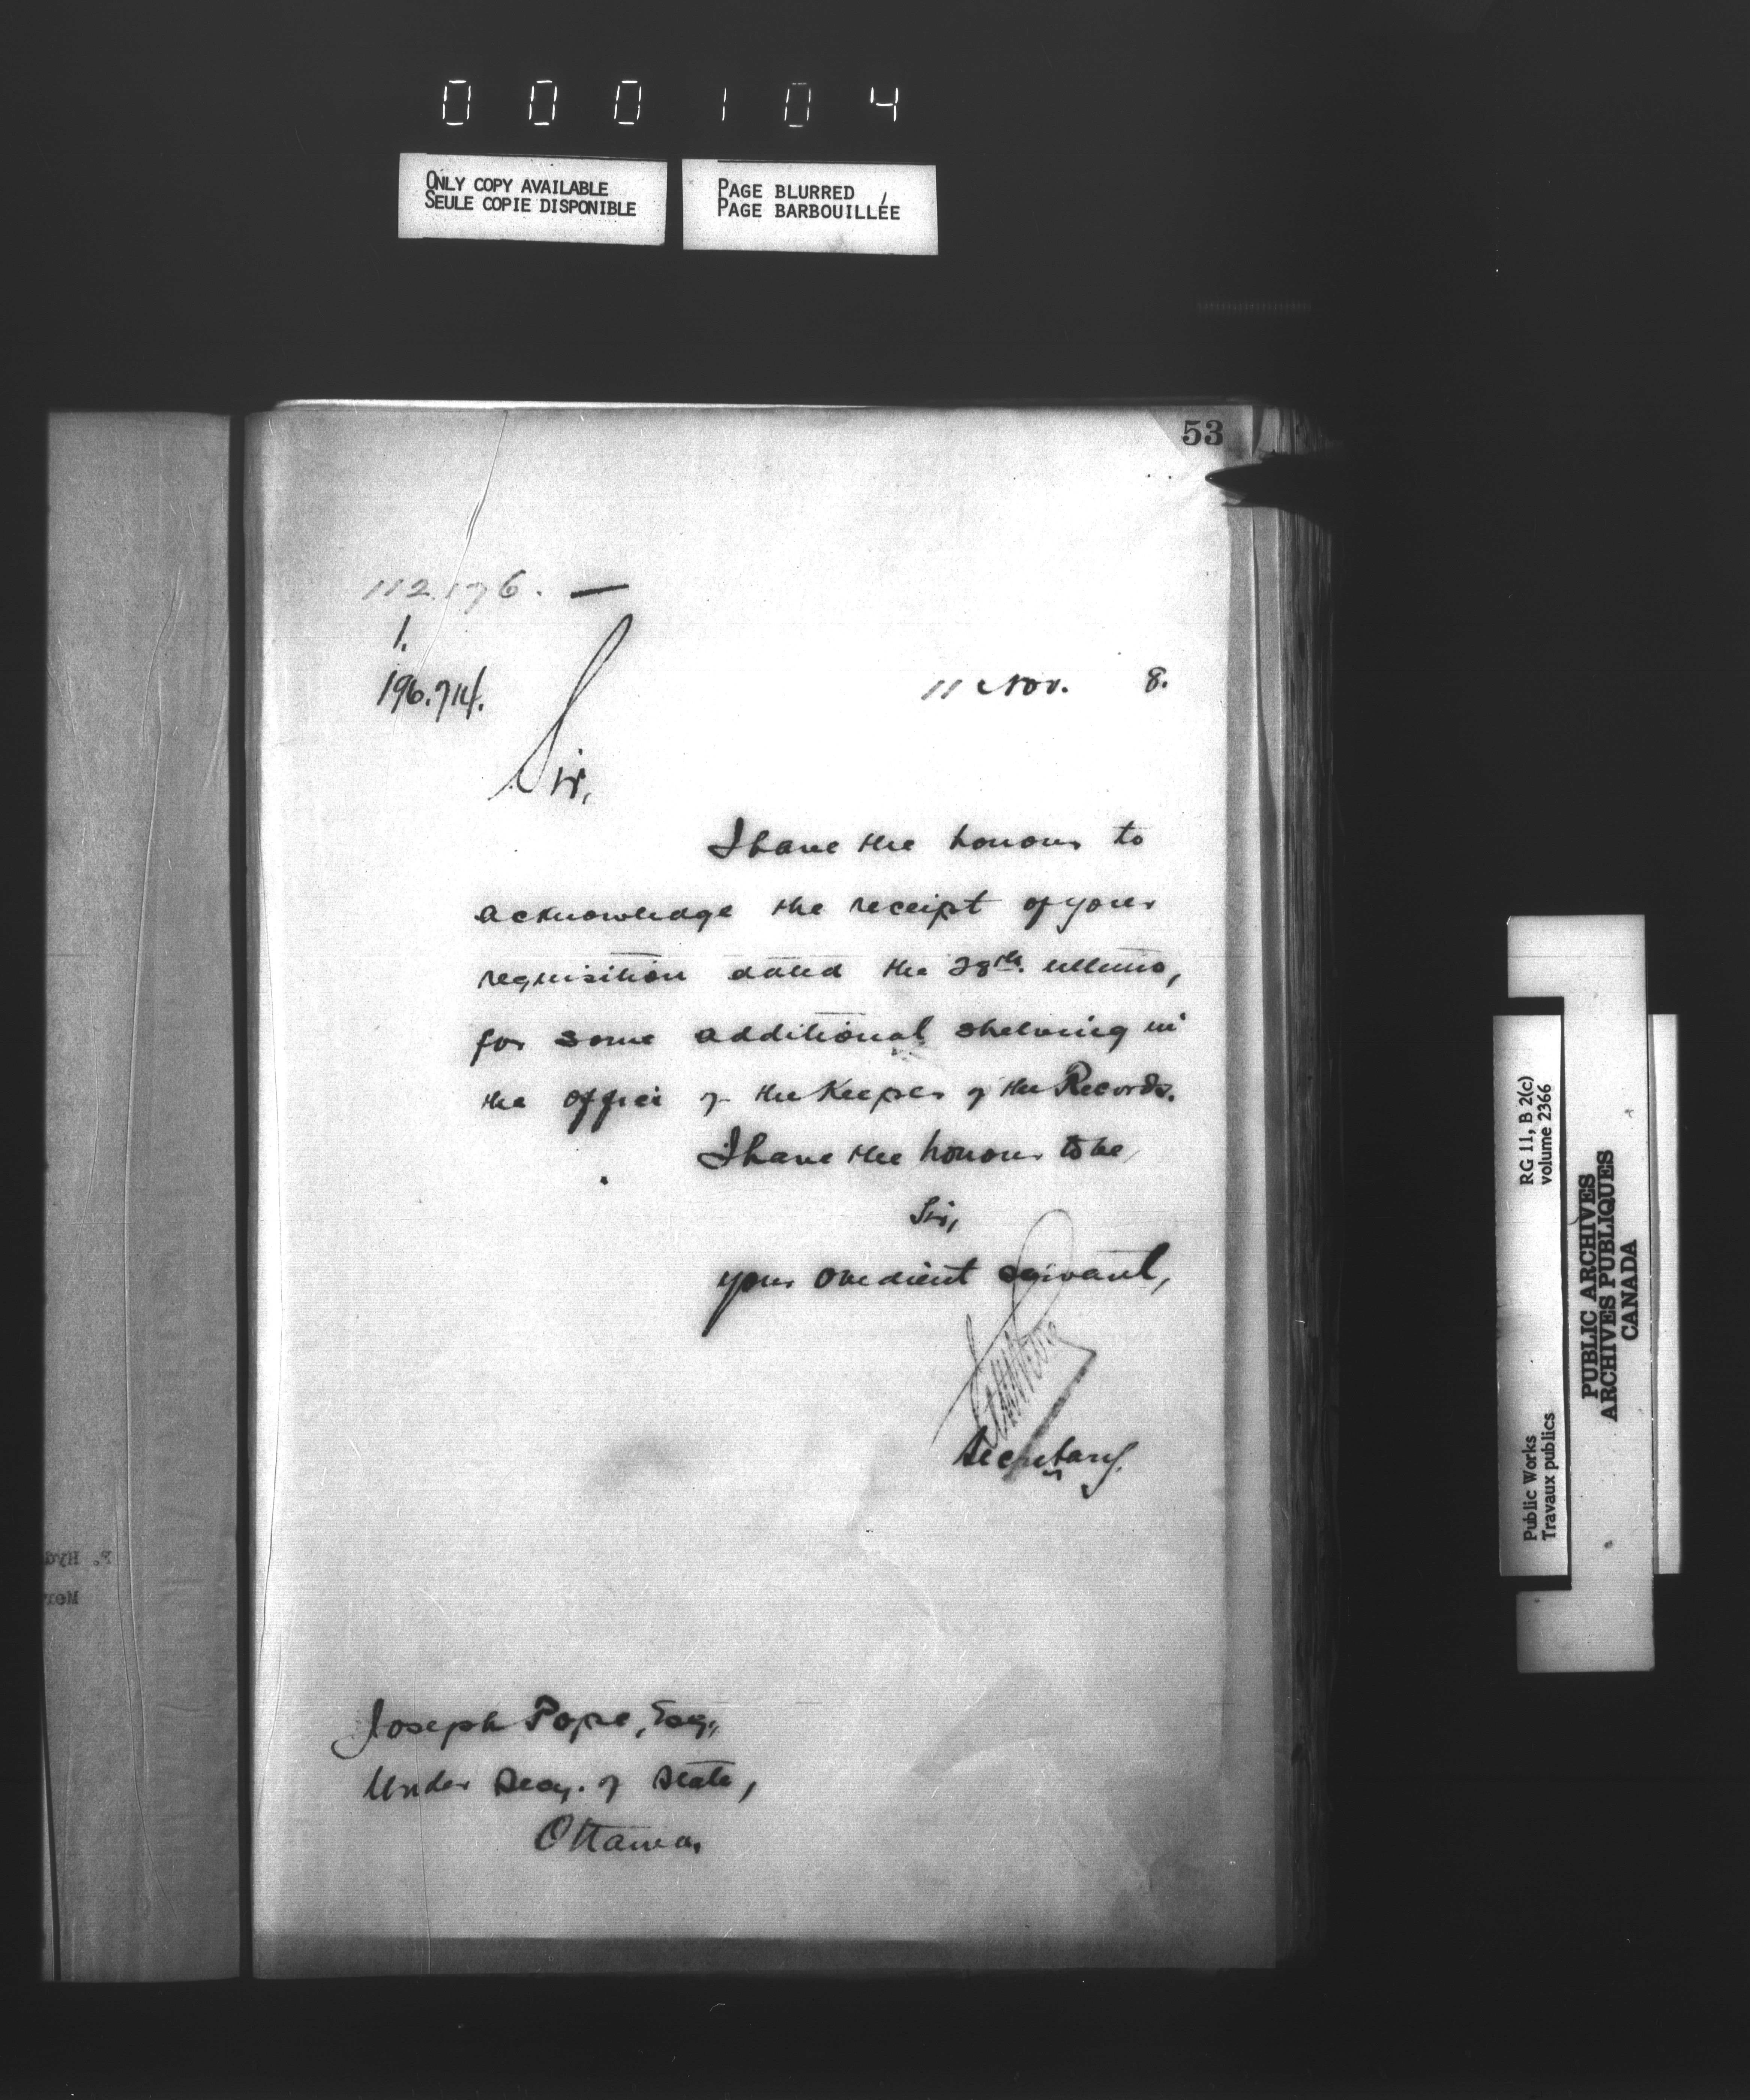 000104
ONLY COPY AVAILABLE
SEULE COPIE DISPONIBLE
PAGE BLURRED
PAGE BARBOUILLÉE
53
112.176. —
1.
196.714.
11 Nov. 8.
Sir,
I have the honour to
acknowledge the receipt of your
requisition dated the 28th. ultimo,
for some additional shelving in
the office of the Keeper of the Records.
I have the honour to be,
Sir,
your obedient servant,
Secretary.
Joseph Pope, Esq.,
Under Secy. of State,
Ottawa.
RG 11, B 2(c)
volume 2366
Public Works
Travaux publics
PUBLIC ARCHIVES
ARCHIVES PUBLIQUES
CANADA